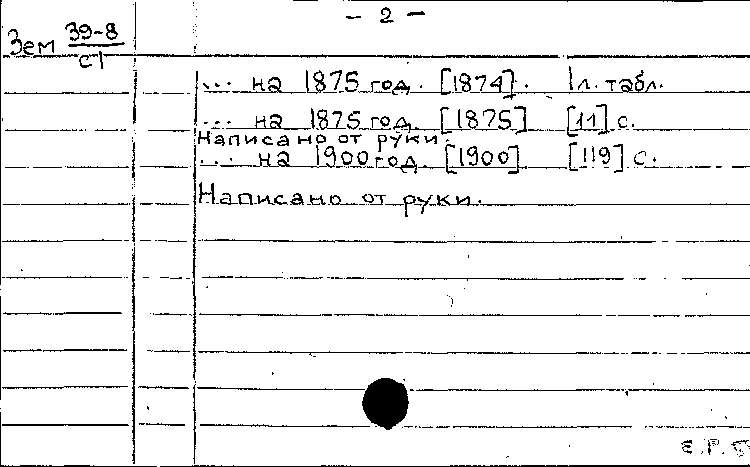 - 2 -
Зем 39-8
с1
... на 1875 год. [1874]. 1л. табл.
... на 1875 год. [1875] [11] с.
Написано от руки.
... на 1900 год. [1900] [119] с.
Написано от руки.